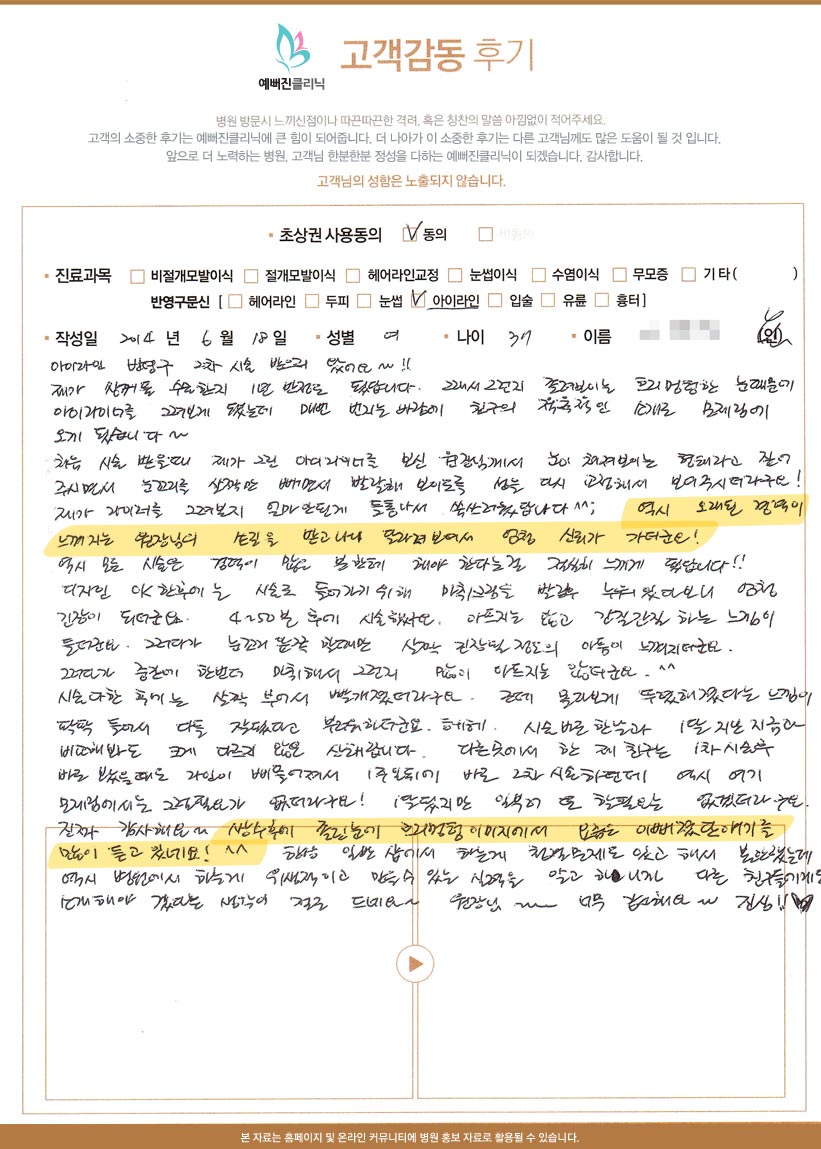 예뻐진클리닉
고객감동 후기
병원 방문시 느끼신점이나 따끈따끈한 격려, 혹은 칭찬의 말씀 아낌없이 적어주세요.
고객의 소중한 후기는 예뻐진클리닉에 큰 힘이 되어줍니다. 더 나아가 이 소중한 후기는 다른 고객님께도 많은 도움이 될 것 입니다.
앞으로 더 노력하는 병원, 고객님 한분한분 정성을 다하는 예뻐진클리닉이 되겠습니다. 감사합니다.
고객님의 성함은 노출되지 않습니다.
초상권 사용동의 동의 비동의
진료과목 비절개모발이식 절개모발이식 헤어라인교정 눈썹이식 수염이식 무모증 기타( )
반영구문신 [ 헤어라인 두피 눈썹 아이라인 입술 유륜 흉터 ]
작성일 2014 년 6 월 18 일 성별 여 나이 37 이름 (인)
아이라인 반영구 2차 시술 받으러 왔어요~!!
제가 쌍꺼풀 수술한지 1년 반정도 됐답니다. 그래서 그런지 졸려보이는 흐리멍텅한 눈때문에
아이라이너를 그려보게 됐는데 매번 번지는 바람에 친구의 적극적인 소개로 모제림에
오게 됐습니다~
처음 시술 받을때 제가 그린 아이라이너를 보신 원장님께서 눈이 쳐져보이는 형태라고 짚어
주시면서 눈꼬리를 살짝만 빼면서 발랄해 보이도록 선을 다시 교정해서 보여주시더라구요!
제가 라이너를 그려보지 얼마 안된게 들통나서 쑥쓰러웠답니다^^; 역시 오래된 경력이
느껴지는 원장님의 손길을 받고나니 달라져보여서 엄청 신뢰가 가더군요!
역시 모든 시술은 경력이 많은 분한테 해야 한다는걸 절실히 느끼게 됐답니다!!
디자인 OK한후에는 시술로 들어가기 위해 마취크림을 바르고 누워있다보니 엄청
긴장이 되더군요. 40~50분 후에 시술했어요. 아프지는 않고 간질간질 하는 느낌이
들더군요. 그러다가 눈꼬리 끝쪽 할때만 살짝 긴장될 정도의 아픔이 느껴지더군요.
그러다가 중간에 한번더 마취해서 그런지 많이 아프지는 않더군요. ^^
시술 다한 후에는 살짝 부어서 빨개졌더라구요. 근데 몰라보게 뚜렷해졌다는 느낌이
팍팍 들어서 다들 잘됐다고 부러워하더군요. 헤헤. 시술 바로 한날과 1달 지난 지금과
비교해봐도 크게 다르지 않은 상태랍니다. 다른곳에서 한 제 친구는 1차시술후
바로 봤을때도 라인이 삐뚤어져서 1주일뒤에 바로 2차 시술하던데 역시 여기
모제림에서는 그럴필요가 없더라구요! 1달됐지만 일부러 또 할필요는 없겠더라구요.
진짜 감사해요~ 쌍수후에 졸린눈에 흐리멍텅 이미지에서 요즘은 이뻐졌단 얘기를
많이 듣고 있네요! ^^ 하긴 일반 샵에서 하는게 청결문제도 있고 해서 불안했는데
역시 병원에서 하는게 위생적이고 믿을수 있는 실력을 알고 하니까 다른 친구들에게도
소개해야 겠다는 생각이 절로 드네요~ 원장님~~ 너무 감사해요~ 진심!!
본 자료는 홈페이지 및 온라인 커뮤니티에 병원 홍보 자료로 활용될 수 있습니다.